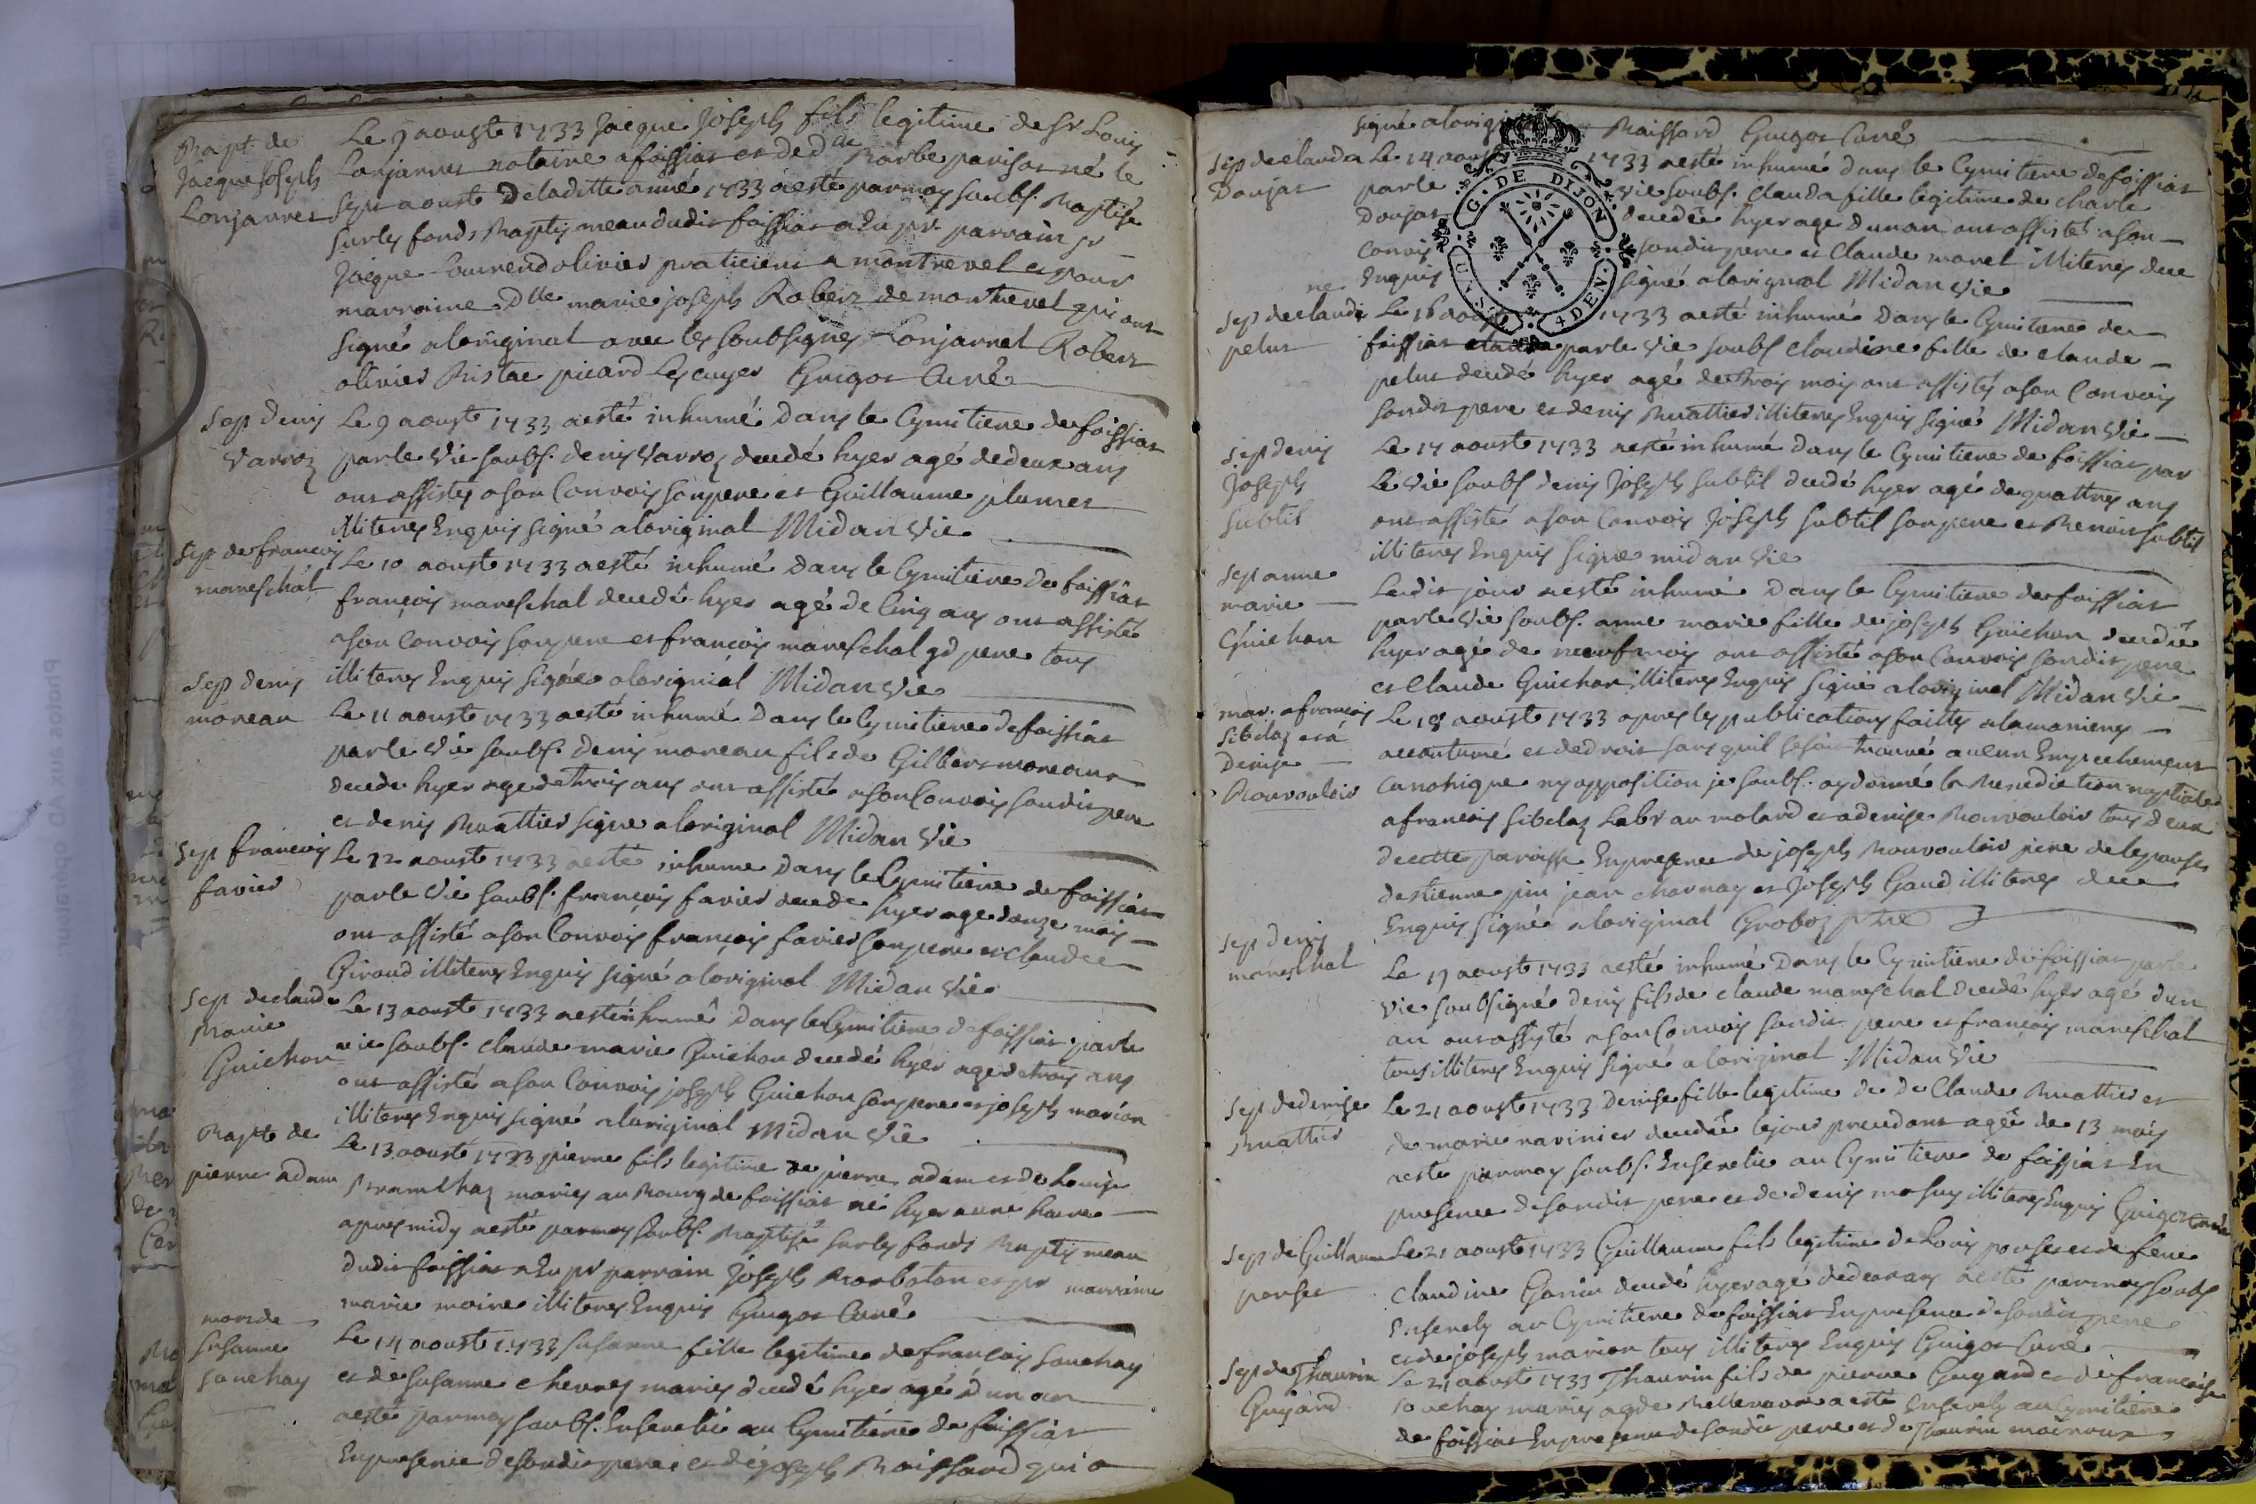 Bapt. de
Jacque Joseph
Lonjarret
Le 9 aoust 1733 Jacque Joseph fils legitime de Sr Louis
Lonjarret notaire a foissiat et de dlle Barbe parisot né le
Sept aoust de laditte année 1733 a esté par moy soubs. Baptisé
sur les fonds Baptismeau dudit foissiat a eu pr parrain Sr
Jacque olivier praticien a montrevel et pour
marraine dlle marie joseph Robert de montrevel qui ont
signé a loriginal avec les soubsignés Lonjarret Robert
olivier picard Guigot Curé
Sep denis
varroz
Le 9 aoust 1733 a esté inhumé dans le Cymitiere de foissiat
par le vic soubs. denis varroz decedé hyer agé de deux ans
ont assistés a son Convois son pere et Guillaume plumet
illiteres Enquis signé a loriginal Midan vic
Sep de francois
mareschal
Le 10 aoust 1733 a esté inhumé dans le Cymitiere de foissiat
françois mareschal decedé hyer agé de Cinq ans ont assisté
a son convois son pere et françois mareschal gd pere tous
illiteres Enquis signée a loriginal Midan vic
Sep denis
moreau
Le 11 aoust 1733 a esté inhumé dans le Cymitiere de foissiat
par le vic soubs. denis moreau fils de Gilbert moreau
decedé hyer agé de trois ans ont assisté a son Convois sondit pere
et denis Buattier signe a loriginal Midan vic
Sep francois
favier
Le 12 aoust 1733 a esté inhumé dans le Cymitiere de foissiat
par le vic soubs. francois favier decedé hyer agé donze mois
ont assisté a son Convois françois favier son pere et claude
Giraud illiteres Enquis signé a loriginal Midan vic
Sep de claude
Marie
Guichon
Le 13 aoust 1733 a esté inhumé dans le Cymitiere de foissiat par le
vic soubs. claude marie Guichon decedé hyer agé de trois ans
ont assisté a son Convois joseph Guichon son pere et joseph marion
illiteres Enquis signé a loriginal Midan vic
Bapt de
pierre adam
Le 13 aoust 1733 pierre fils legitime de pierre adam et de Louise
mariés au Bourg de foissiat né hyer a une heure
apres midy a esté par moy soubs. Baptisé sur les fonds Baptismeau
dudit foissiat a eu pr parrain Joseph et pr marraine
marie moine illiteres Enquis Guigot Curé
mort de
Susanne
souchay
Le 14 aoust 1733 susanne fille legitime de francois souchay
et de susanne mariés decedé hyer agé d'un an
a esté par moy soubs. Enseveli au Cymitiere de foissiat
En presence de sondit pere et de joseph Boissard qui a
signé a lorigi Boissard Guigot Curé
Sep de clauda
Doujat
Le 14 aoust 1733 a esté inhumé dans le Cymitiere de foissiat
par le vic soubs. Clauda fille legitime de charle
Doujat decedée hyer age dun an ont assisté a son
Convois sondit pere et claude morel illiteres de ce
Enquis signé a loriginal Midan vic
Sep de claudi
ne
pelus
Le 16 aoust 1733 a esté inhumé dans le Cymitiere de
foissiat par le vic soubs claudine fille de claude
pelus decedé hyer agé de trois mois ont assistés a son Convois
sondit pere et denis Buattier illiteres Enquis signé Midan vic
Sep denis
Joseph
Subtil
Le 17 aoust 1733 a esté inhumé dans le Cymitiere de foissiat par
le vic soubs denis Joseph subtil decedé hyer agé de quattres ans
ont assisté a son Convois Joseph subtil son pere et Benoit subtil
illiteres Enquis signe midan vic
Sep anne
marie
Guichon
Ledit jour a esté inhumé dans le Cymitiere de foissiat
par le vic soubs. anne marie fille de joseph Guichon decedée
hyer agé de neuf mois ont assisté a son Convois sondit pere
et Claude Guichon illiteres Enquis signé a loriginal Midan vic
mar. a francois
Sibelaz et a
Denise
Bouvouloir
Le 18 aoust 1733 apres les publications faittes a la maniere
accoutumé et de droit sans quil se soit trouvé aucun Empechement
canonique ny opposition je soubs. ay donné la Benediction nuptiale
a francois sibelaz Labr au molard et a denise Bouvouloir tous deux
de cette paroisse En presence de joseph Bouvouloir pere de lepouse
destienne pin jean charnay et Joseph Gaud illiteres de ce
Enquis signé a loriginal Groboz ptre
Sep denis
mareschal
Le 19 aoust 1733 a esté inhumé dans le Cymitiere de foissiat par le
vic soubsigné denis fils de claude mareschal decedé hyer agé dun
an ont assysté a son Convois sondit pere et francois mareschal
tous illiteres Enquis signé a loriginal Midan vic
Sep de denise
Buattier
Le 21 aoust 1733 Denise fille legitime de de Claude Buattier et
de marie ravinier decedée le jour precedant agée de 13 mois
a esté par moy soubs. Enseveli au Cymitiere de foissiat En
presence de sondit pere et de denis illiteres Enquis Guigot Curé
Sep de Guillaume
ponset
Le 21 aoust 1733 Guillaume fils legitime de Louis ponset et de feue
claudine Garin decedé hyer agé de deux ans a esté par moy soubs
Ensevely au Cymitiere de foissiat En presence de sondit pere
et de joseph marion tous illiteres Enquis Guigot Curé
Sep de Thaurin
Guyard
Le 21 aoust 1733 Thaurin fils de pierre Guyard et de francoise
souchay mariés a esté Ensevely au Cymitiere
de foissiat En presence de sondit pere et de Thaurin
G. DE DIJON
4 DEN.